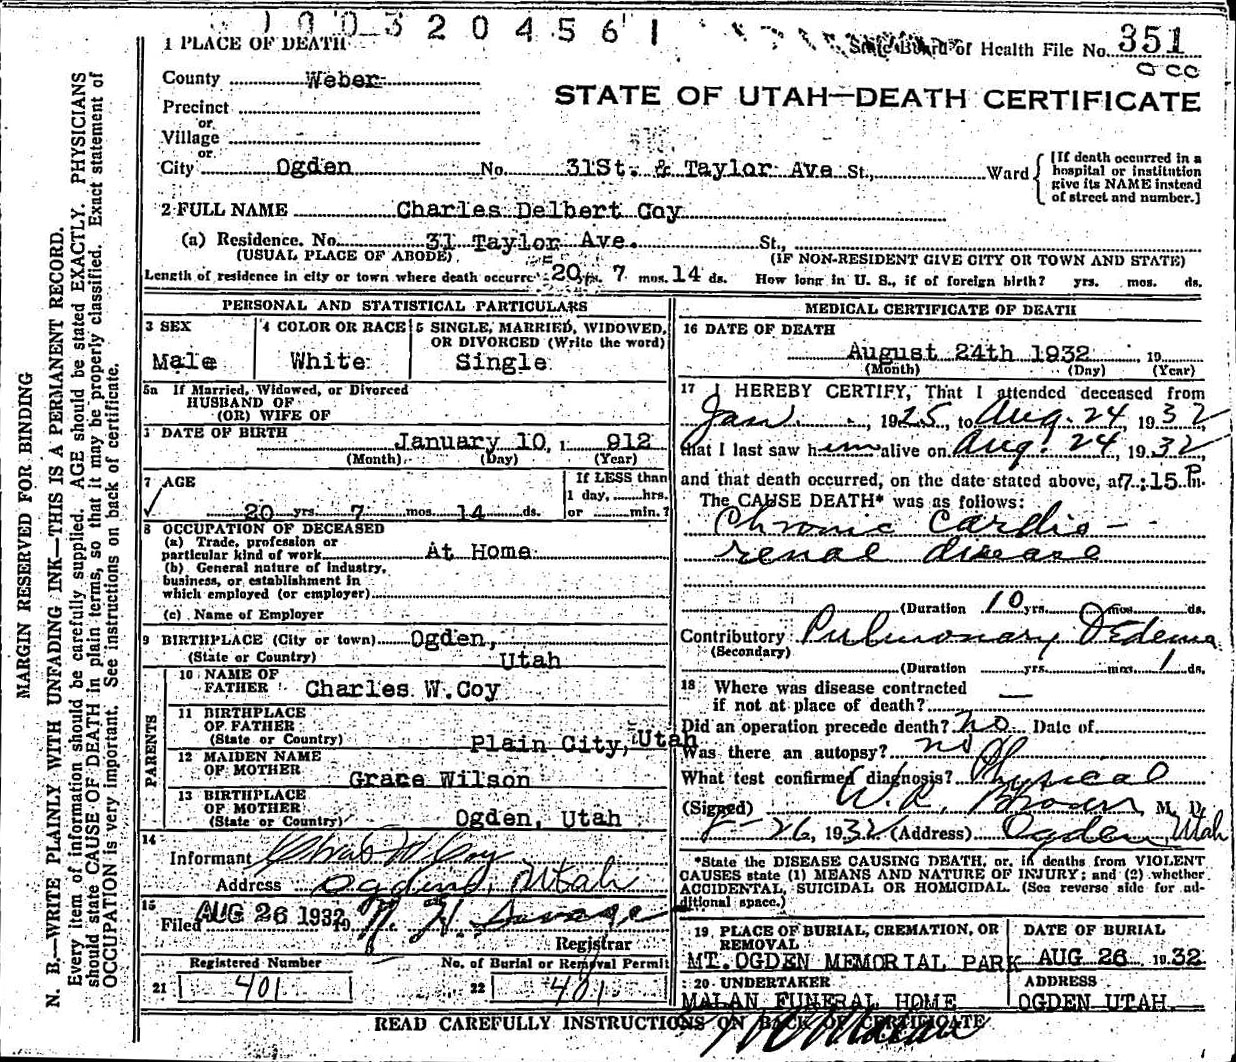 1003204561
1 PLACE OF DEATH
State Board of Health File No. 351
County Weber
STATE OF UTAH—DEATH CERTIFICATE
Precinct
or
Village
or
City Ogden No. 31St. & Taylor Ave St., Ward
[If death occurred in a
hospital or institution
give its NAME instead
of street and number.]
2 FULL NAME Charles Delbert Coy
(a) Residence. No. 31 Taylor Ave. St.,
(USUAL PLACE OF ABODE) (IF NON-RESIDENT GIVE CITY OR TOWN AND STATE)
Length of residence in city or town where death occurre 20 yrs. 7 mos. 14 ds. How long in U. S., if of foreign birth? yrs. mos. ds.
PERSONAL AND STATISTICAL PARTICULARS
3 SEX
Male
4 COLOR OR RACE
White
5 SINGLE, MARRIED, WIDOWED,
OR DIVORCED (Write the word)
Single
5a If Married, Widowed, or Divorced
HUSBAND OF
(OR) WIFE OF
DATE OF BIRTH
January 10, 1 912
(Month) (Day) (Year)
7 AGE
20 yrs. 7 mos. 14 ds.
If LESS than
1 day, hrs.
or min.?
8 OCCUPATION OF DECEASED
(a) Trade, profession or
particular kind of work At Home
(b) General nature of industry,
business, or establishment in
which employed (or employer)
(c) Name of Employer
9 BIRTHPLACE (City or town) Ogden,
(State or Country) Utah
PARENTS
10 NAME OF
FATHER Charles W.Coy
11 BIRTHPLACE
OF FATHER
(State or Country) Plain City, Utah
12 MAIDEN NAME
OF MOTHER Grace Wilson
13 BIRTHPLACE
OF MOTHER
(State or Country) Ogden, Utah
14
Informant Chas W Coy
Address Ogden, Utah
15
Filed AUG 26 1932 19
Registrar
Registered Number
21 401
No. of Burial or Removal Permit
22 401
MEDICAL CERTIFICATE OF DEATH
16 DATE OF DEATH
August 24th 1932 , 19
(Month) (Day) (Year)
17 I HEREBY CERTIFY, That I attended deceased from
Jan. , 1925, to Aug. 24, 1932
that I last saw him alive on Aug. 24, 1932,
and that death occurred, on the date stated above, at 7:15 P.m.
The CAUSE DEATH* was as follows:
Chronic Cardio-
renal disease
(Duration 10 yrs. 0 mos. ds.
Contributory Pulmonary Oedema
(Secondary)
(Duration yrs. mos. 1 ds.
18 Where was disease contracted
if not at place of death? —
Did an operation precede death? no Date of
Was there an autopsy? no
What test confirmed diagnosis? Physical
(Signed) W.R. Brown M. D.
8-26, 1932 (Address) Ogden Utah
*State the DISEASE CAUSING DEATH, or, in deaths from VIOLENT
CAUSES state (1) MEANS AND NATURE OF INJURY; and (2) whether
ACCIDENTAL, SUICIDAL OR HOMICIDAL. (See reverse side for ad-
ditional space.)
19 PLACE OF BURIAL, CREMATION, OR
REMOVAL
MT. OGDEN MEMORIAL PARK
DATE OF BURIAL
AUG 26 1932
20 UNDERTAKER
MALAN FUNERAL HOME
ADDRESS
OGDEN UTAH.
READ CAREFULLY INSTRUCTIONS ON BACK OF CERTIFICATE
MARGIN RESERVED FOR BINDING
N. B.—WRITE PLAINLY WITH UNFADING INK—THIS IS A PERMANENT RECORD.
Every item of information should be carefully supplied. AGE should be stated EXACTLY. PHYSICIANS
should state CAUSE OF DEATH in plain terms, so that it may be properly classified. Exact statement of
OCCUPATION is very important. See instructions on back of certificate.